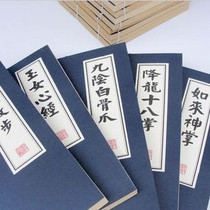 步
玉女心經
九陰白骨爪
降龍十八掌
如來神掌